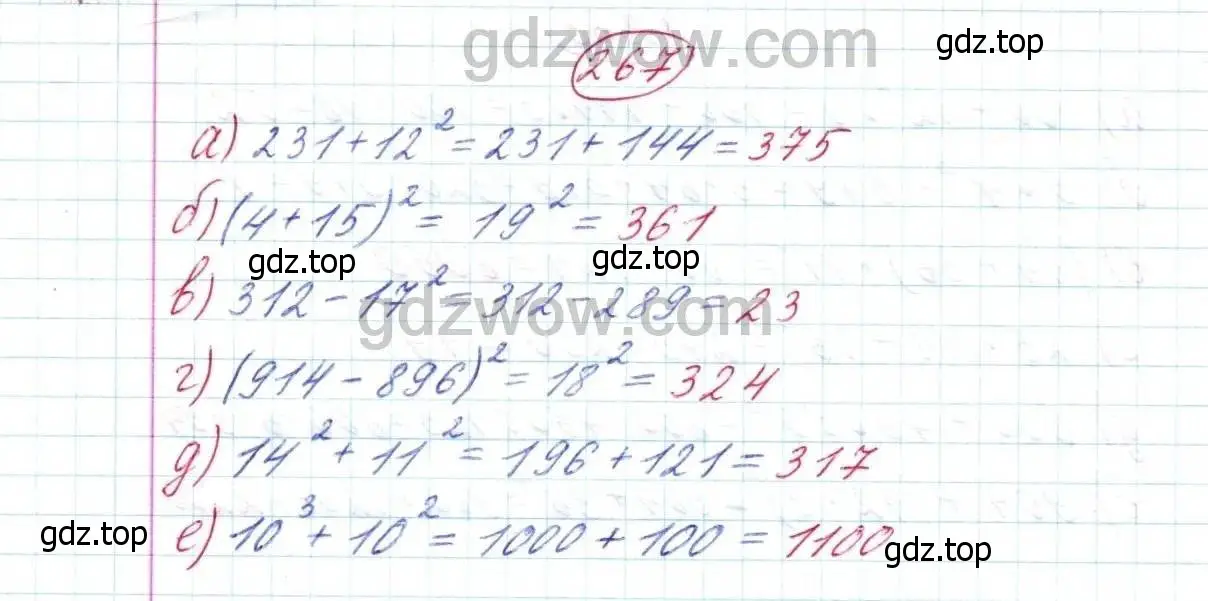 gdzwow.com
gdz.top
267
а) 231 + 12² = 231 + 144 = 375
б) (4 + 15)² = 19² = 361
gdz.top
gdz.top
в) 312 - 17² = 312 - 289 = 23
gdzwow.com
г) (914 - 896)² = 18² = 324
д) 14² + 11² = 196 + 121 = 317
е) 10³ + 10² = 1000 + 100 = 1100
gdz.top
gdz.top